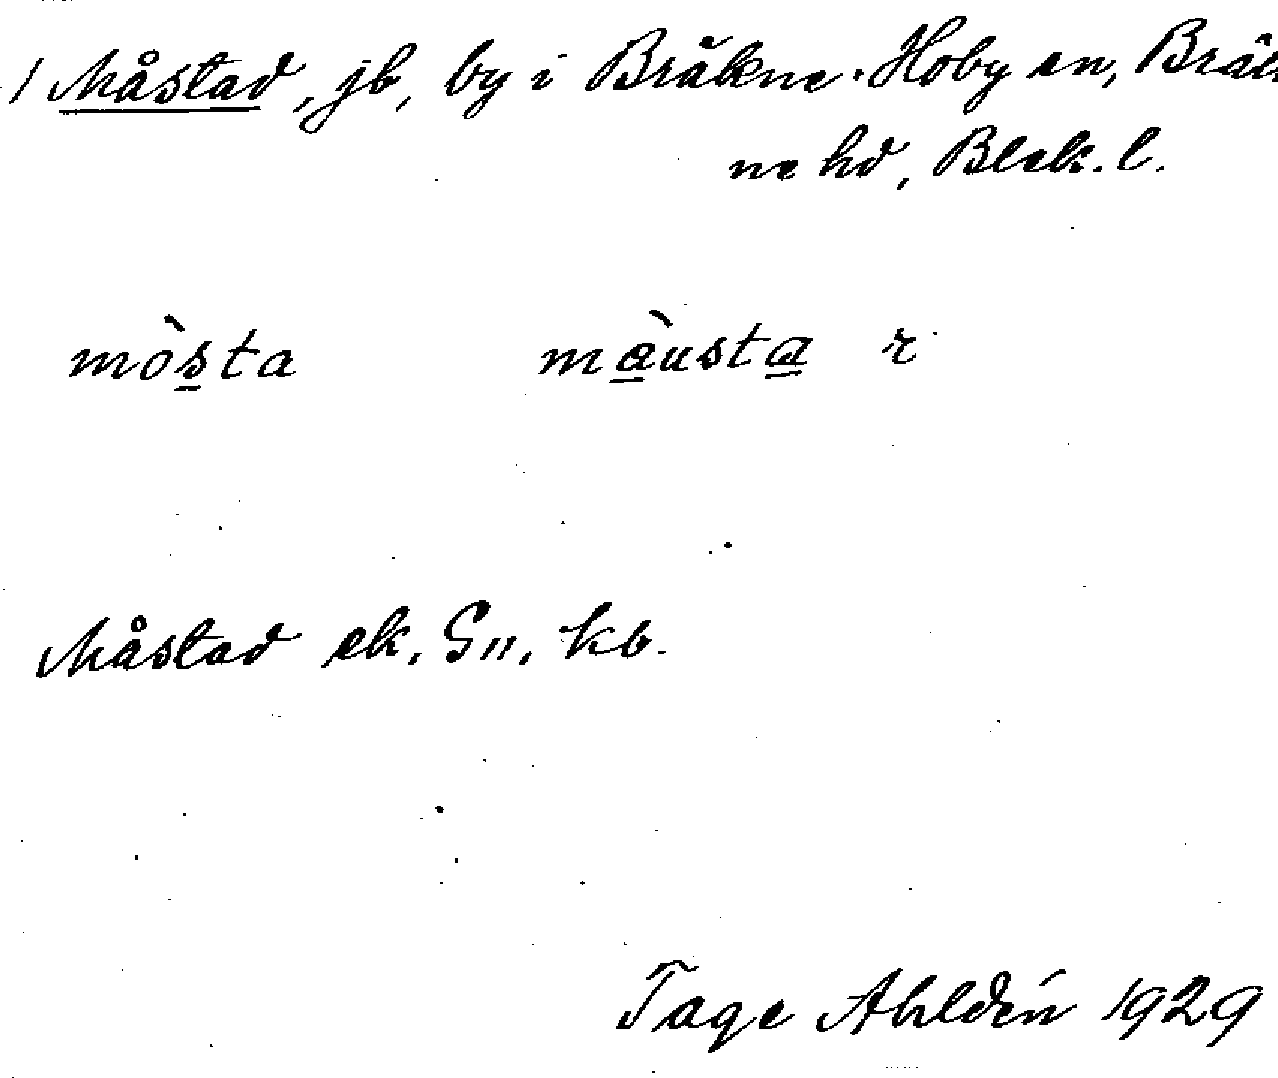 / Måstad, jb, by i Bräkne-Hoby sn, Bräk
ne hd, Blek. l.
mòs̠ta mà̠usta̳ r
Måstad ek. G11, kb.
Tage Ahldén 1929